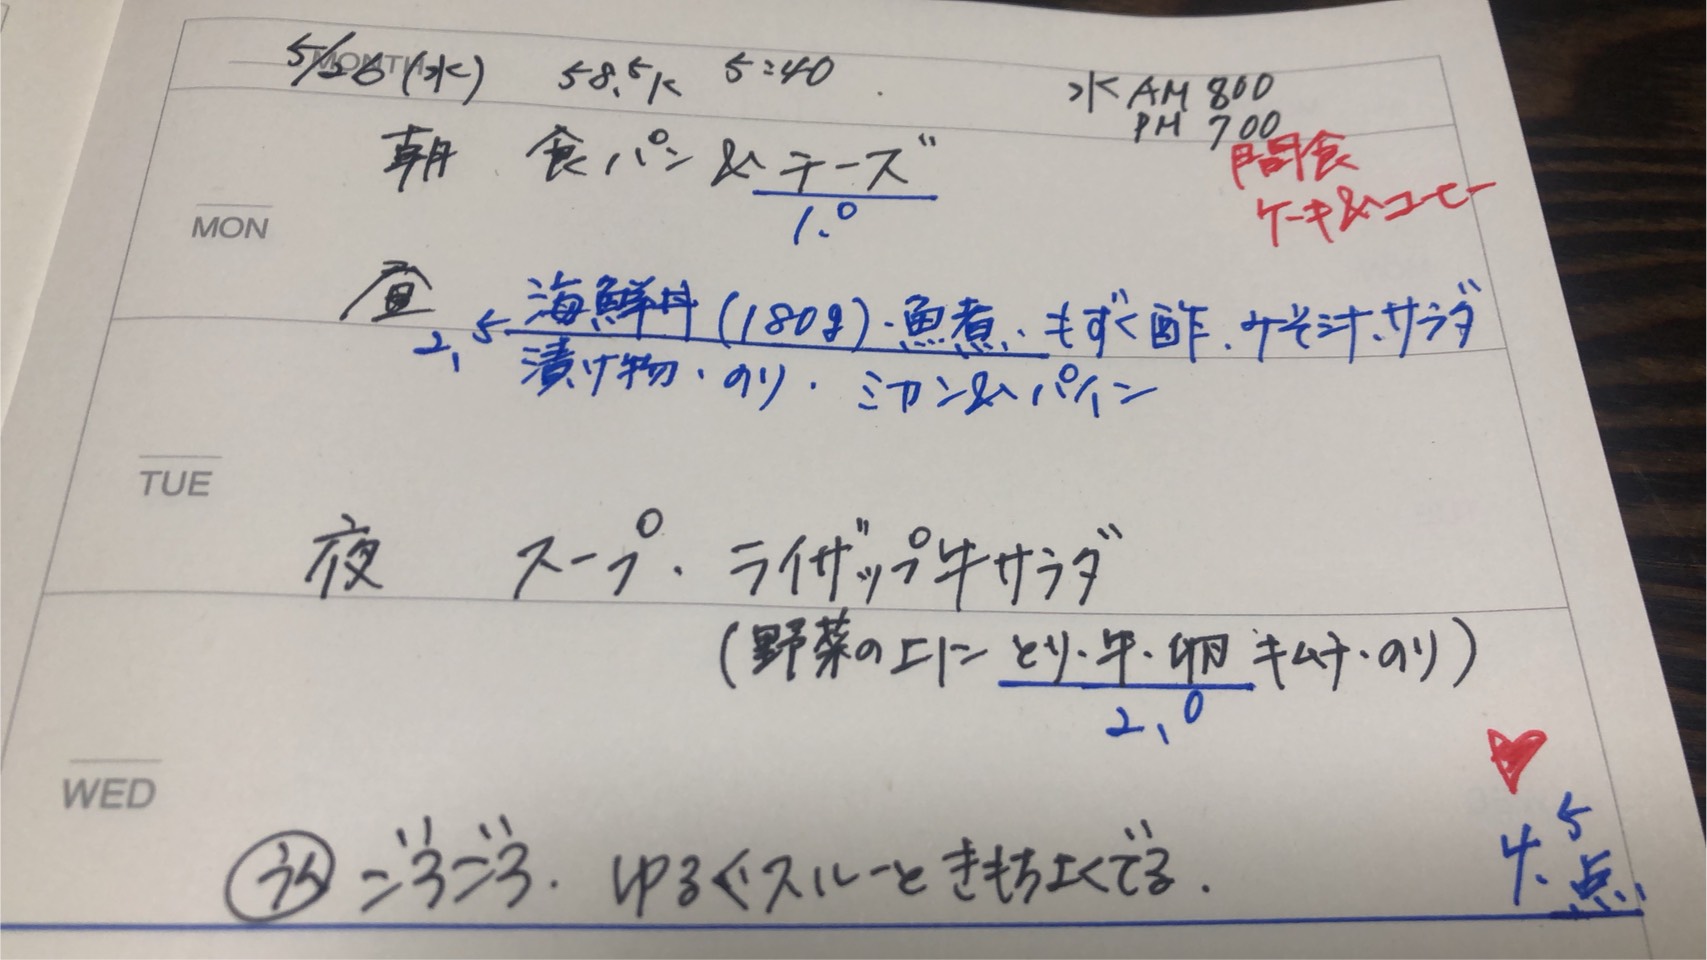 MONTH
5/26(水) 58.5K 5:40
水 AM 800
PM 700
朝 食パン&チーズ
1.0
間食
ケーキ&コーヒー
MON
昼
2.5 海鮮丼(180g)・魚煮・もずく酢・みそ汁・サラダ
漬け物・のり・ミカン&パイン
TUE
夜 スープ・ライザップ牛サラダ
(野菜の上に とり・牛・卵 キムチ・のり)
2.0
WED
ゴロゴロ. ゆるくスルーときもちよくでる.
4.5点